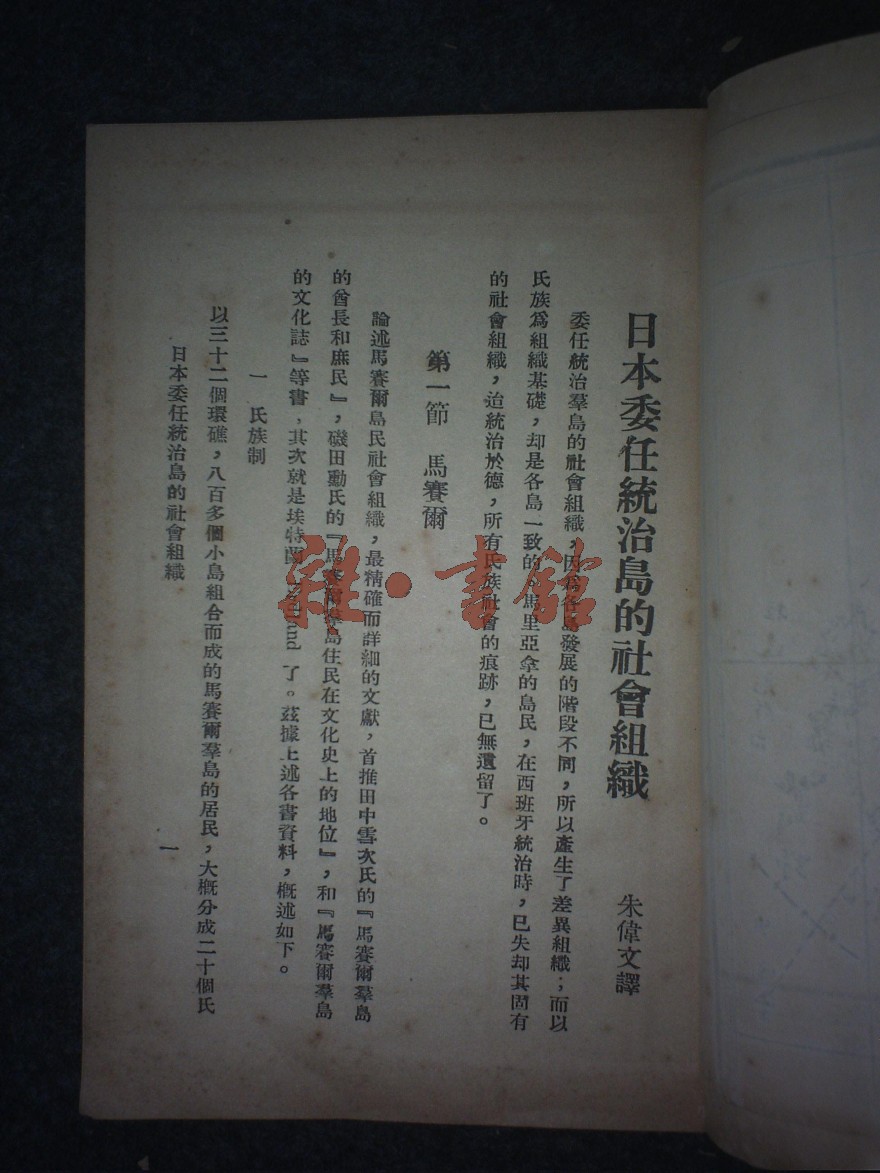 日本委任統治島的社會組織
朱偉文譯
委任統治羣島的社會組織,因爲各島發展的階段不同,所以產生了差異組織;而以
氏族爲組織基礎,却是各島一致的,馬里亞拿的島民,在西班牙統治時,已失却其固有
的社會組織,迨統治於德,所有氏族社會的痕跡,已無遺留了。
第一節 馬賽爾
論述馬賽爾島民社會組織,最精確而詳細的文獻,首推田中雲次氏的『馬賽爾羣島
的酋長和庶民』,磯田勳氏的『馬賽爾羣島住民在文化史上的地位』,和『馬賽爾羣島
的文化誌』等書,其次就是埃特蘭 了。茲據上述各書資料,概述如下。
一 氏族制
以三十二個環礁,八百多個小島組合而成的馬賽爾羣島的居民,大概分成二十個氏
日本委任統治島的社會組織
一
雜·書館